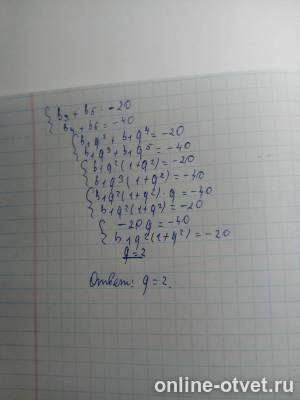 { b₃ + b₅ = -20
{ b₄ + b₆ = -40
{ b₁q² + b₁q⁴ = -20
{ b₁q³ + b₁q⁵ = -40
{ b₁q²(1+q²) = -20
{ b₁q³(1+q²) = -40
{ b₁q²(1+q²)·q = -40
{ b₁q²(1+q²) = -20
{ -20q = -40
{ b₁q²(1+q²) = -20
q=2
Ответ: q=2.
online-otvet.ru